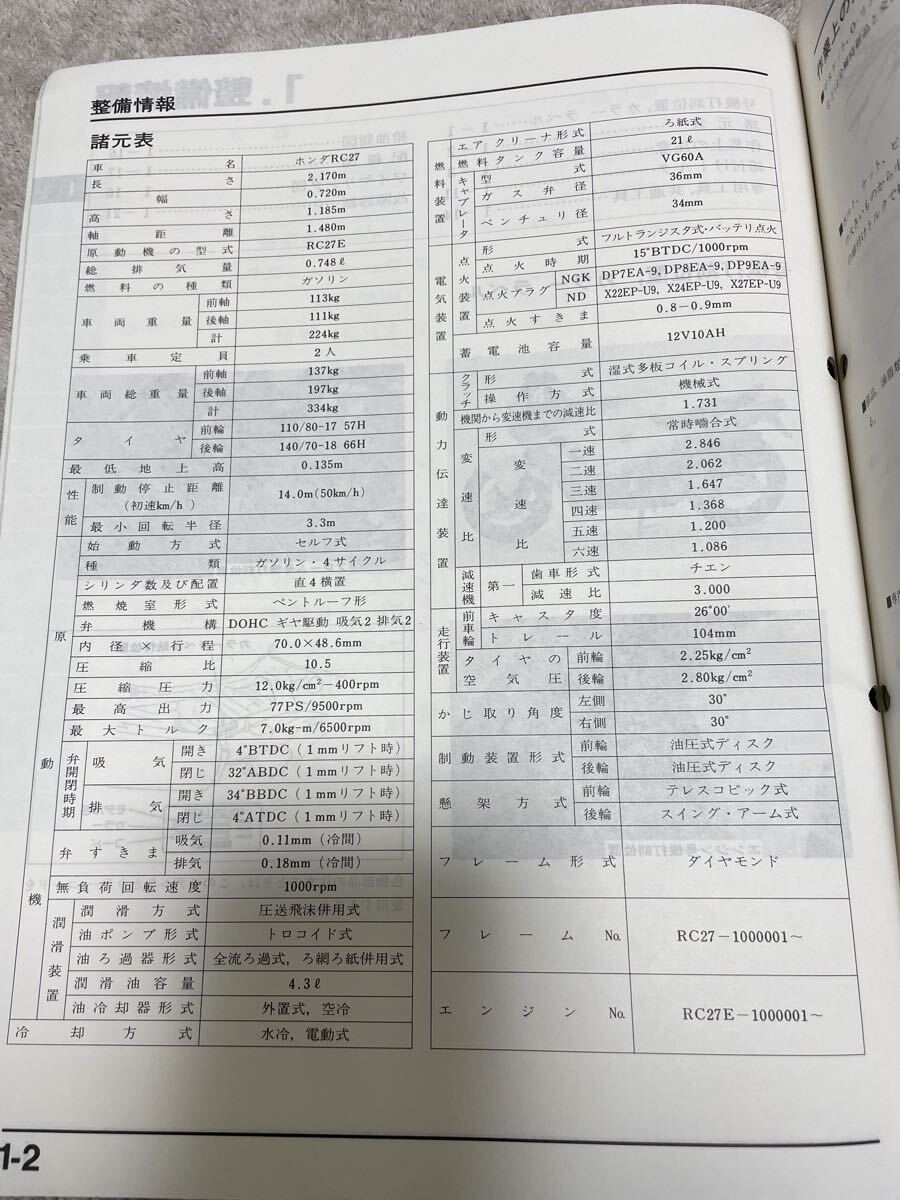 整備情報
諸元表
車名 ホンダRC27
長さ 2.170m
幅 0.720m
高さ 1.185m
軸距離 1.480m
原動機の型式 RC27E
総排気量 0.748ℓ
燃料の種類 ガソリン
車両重量 前軸 113kg
後軸 111kg
計 224kg
乗車定員 2人
車両総重量 前軸 137kg
後軸 197kg
計 334kg
タイヤ 前輪 110/80-17 57H
後輪 140/70-18 66H
最低地上高 0.135m
性能 制動停止距離 (初速km/h) 14.0m(50km/h)
最小回転半径 3.3m
原動機 始動方式 セルフ式
種類 ガソリン・4サイクル
シリンダ数及び配置 直4横置
燃焼室形式 ペントルーフ形
弁機構 DOHC ギヤ駆動 吸気2 排気2
内径×行程 70.0×48.6mm
圧縮比 10.5
圧縮圧力 12.0kg/cm²−400rpm
最高出力 77PS/9500rpm
最大トルク 7.0kg-m/6500rpm
弁開閉時期 吸気 開き 4°BTDC(1mmリフト時)
閉じ 32°ABDC(1mmリフト時)
排気 開き 34°BBDC(1mmリフト時)
閉じ 4°ATDC(1mmリフト時)
弁すきま 吸気 0.11mm(冷間)
排気 0.18mm(冷間)
無負荷回転速度 1000rpm
潤滑装置 潤滑方式 圧送飛沫併用式
油ポンプ形式 トロコイド式
油ろ過器形式 全流ろ過式,ろ網ろ紙併用式
潤滑油容量 4.3ℓ
油冷却器形式 外置式,空冷
冷却方式 水冷,電動式
燃料装置 エアクリーナ形式 ろ紙式
燃料タンク容量 21ℓ
キャブレータ 型式 VG60A
ガス弁径 36mm
ベンチュリ径 34mm
電気装置 点火装置 形式 フルトランジスタ式・バッテリ点火
点火時期 15°BTDC/1000rpm
点火プラグ NGK DP7EA-9, DP8EA-9, DP9EA-9
ND X22EP-U9, X24EP-U9, X27EP-U9
点火すきま 0.8−0.9mm
蓄電池容量 12V10AH
動力伝達装置 クラッチ 形式 湿式多板コイル・スプリング
操作方式 機械式
機関から変速機までの減速比 1.731
変速比 形式 常時嚙合式
変速比 一速 2.846
二速 2.062
三速 1.647
四速 1.368
五速 1.200
六速 1.086
減速機 第一 歯車形式 チエン
減速比 3.000
走行装置 前車輪 キャスタ度 26°00′
トレール 104mm
タイヤの空気圧 前輪 2.25kg/cm²
後輪 2.80kg/cm²
かじ取り角度 左側 30°
右側 30°
制動装置形式 前輪 油圧式ディスク
後輪 油圧式ディスク
懸架方式 前輪 テレスコピック式
後輪 スイング・アーム式
フレーム形式 ダイヤモンド
フレームNo. RC27−1000001〜
エンジンNo. RC27E−1000001〜
1-2